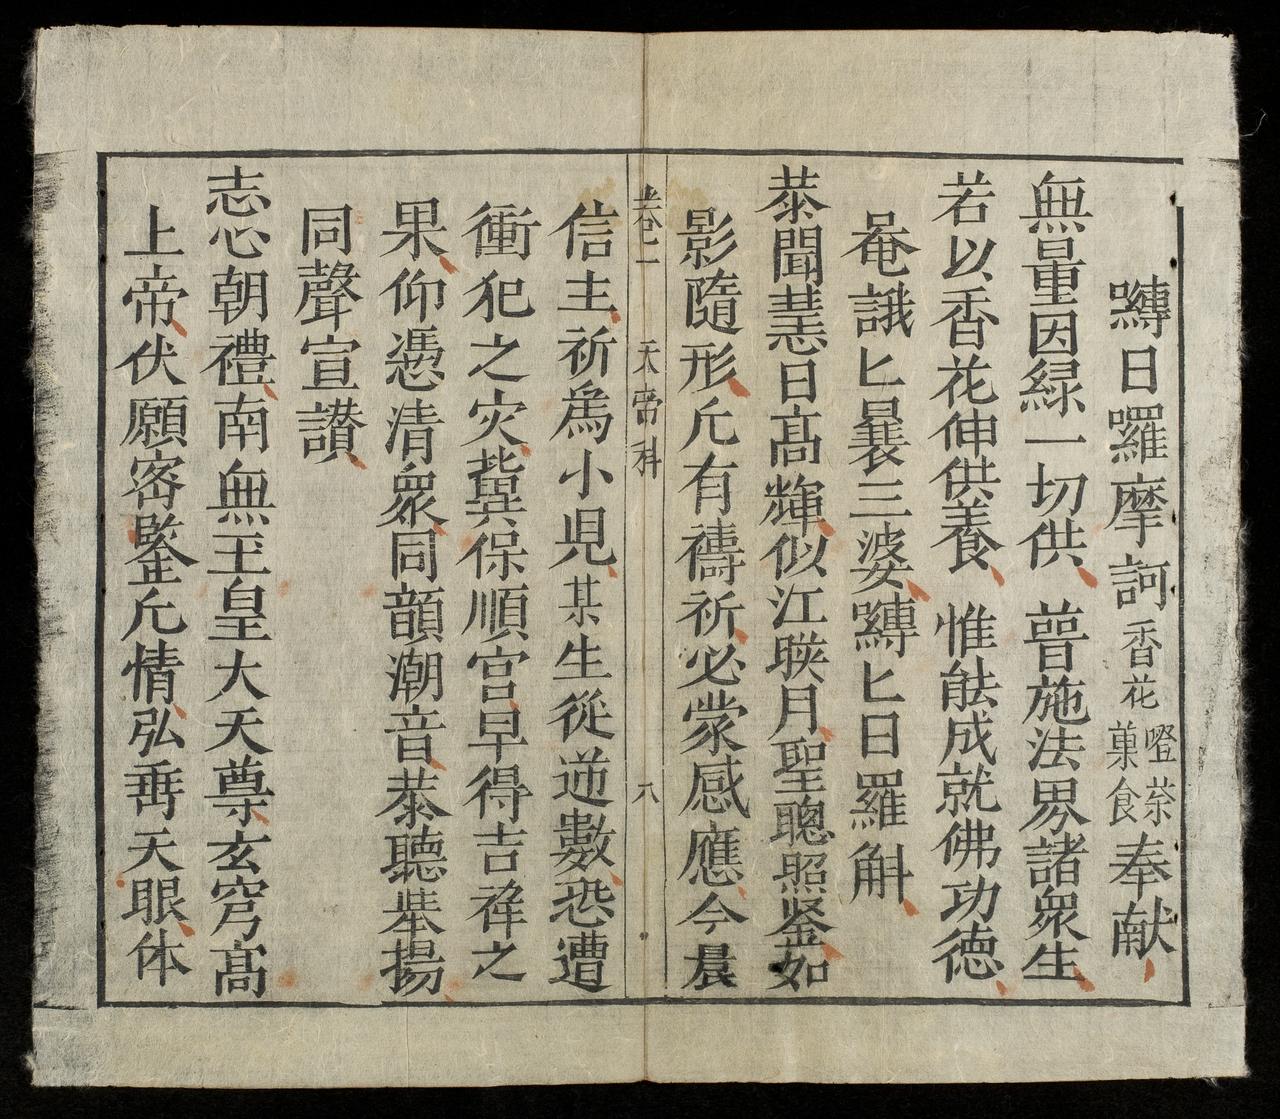 嚩日囉摩訶香花噔茶菓食奉献
無量因緑一切供普施法界諸衆生
若以香花伸供養惟能成就佛功德
菴誐匕曩三婆嚩匕日羅斛
恭聞慧日髙輝似江聧月聖聰照鉴如
影隨形凢有禱祈必蒙感應今晨
卷一 天帝科 八
信主祈為小児某生從逆數恐遭
衝犯之灾冀保順宫早得吉祥之
果仰憑清衆同韻潮音恭聽舉揚
同聲宣讃
志心朝禮南無玉皇大天尊玄穹髙
上帝伏願密鑒凢情弘垂天眼体